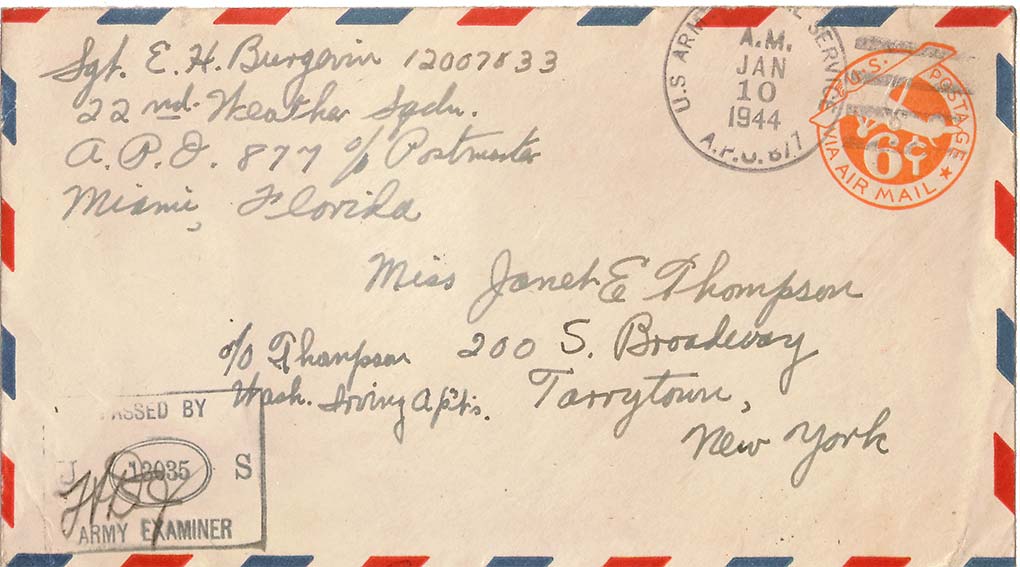 Sgt. E. H. Burgevin 12007833
22nd Weather Sqdn.
A.P.O. 877 c/o Postmaster
Miami, Florida
U.S ARMY SERVICE
A.M.
JAN
10
1944
A.P.O. 877
U.S. POSTAGE
6¢
VIA AIR MAIL
Miss Janet E Thompson
c/o Thompson 200 S. Broadway
Wash. Irving Apts. Tarrytown,
New York
PASSED BY
U 12035 S
ARMY EXAMINER